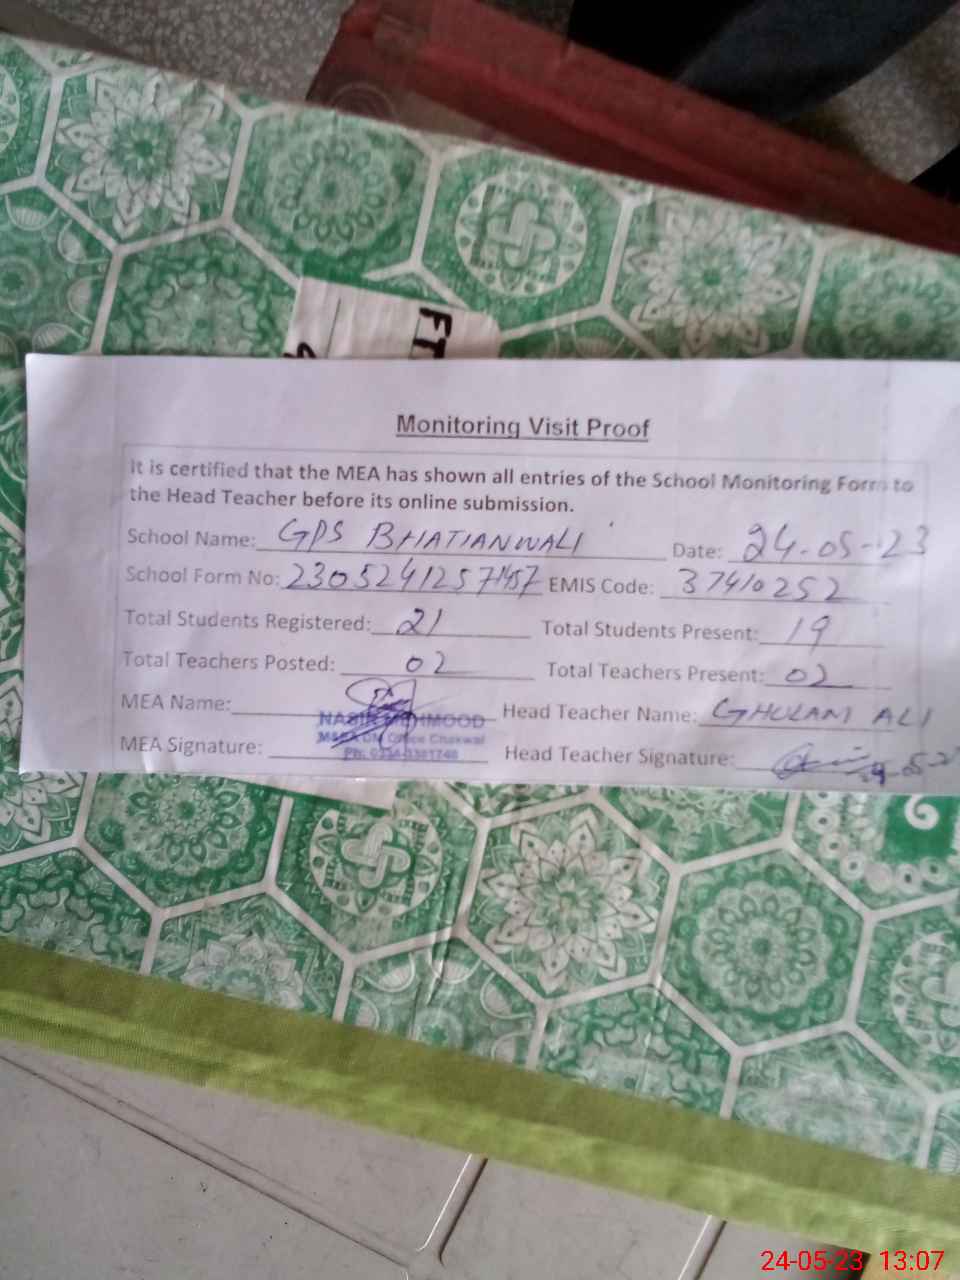 FT
Monitoring Visit Proof
It is certified that the MEA has shown all entries of the School Monitoring Form to
the Head Teacher before its online submission.
School Name: GPS BHATIANWALI Date: 24-05-23
School Form No: EMIS Code: 37410252
Total Students Registered: 21 Total Students Present: 19
Total Teachers Posted: 02 Total Teachers Present: 02
MEA Name: Head Teacher Name: GHULAM ALI
NASIR MEHMOOD
Office Chakwal
MEA Signature: Head Teacher Signature:
Ph:
24-05-23 13:07